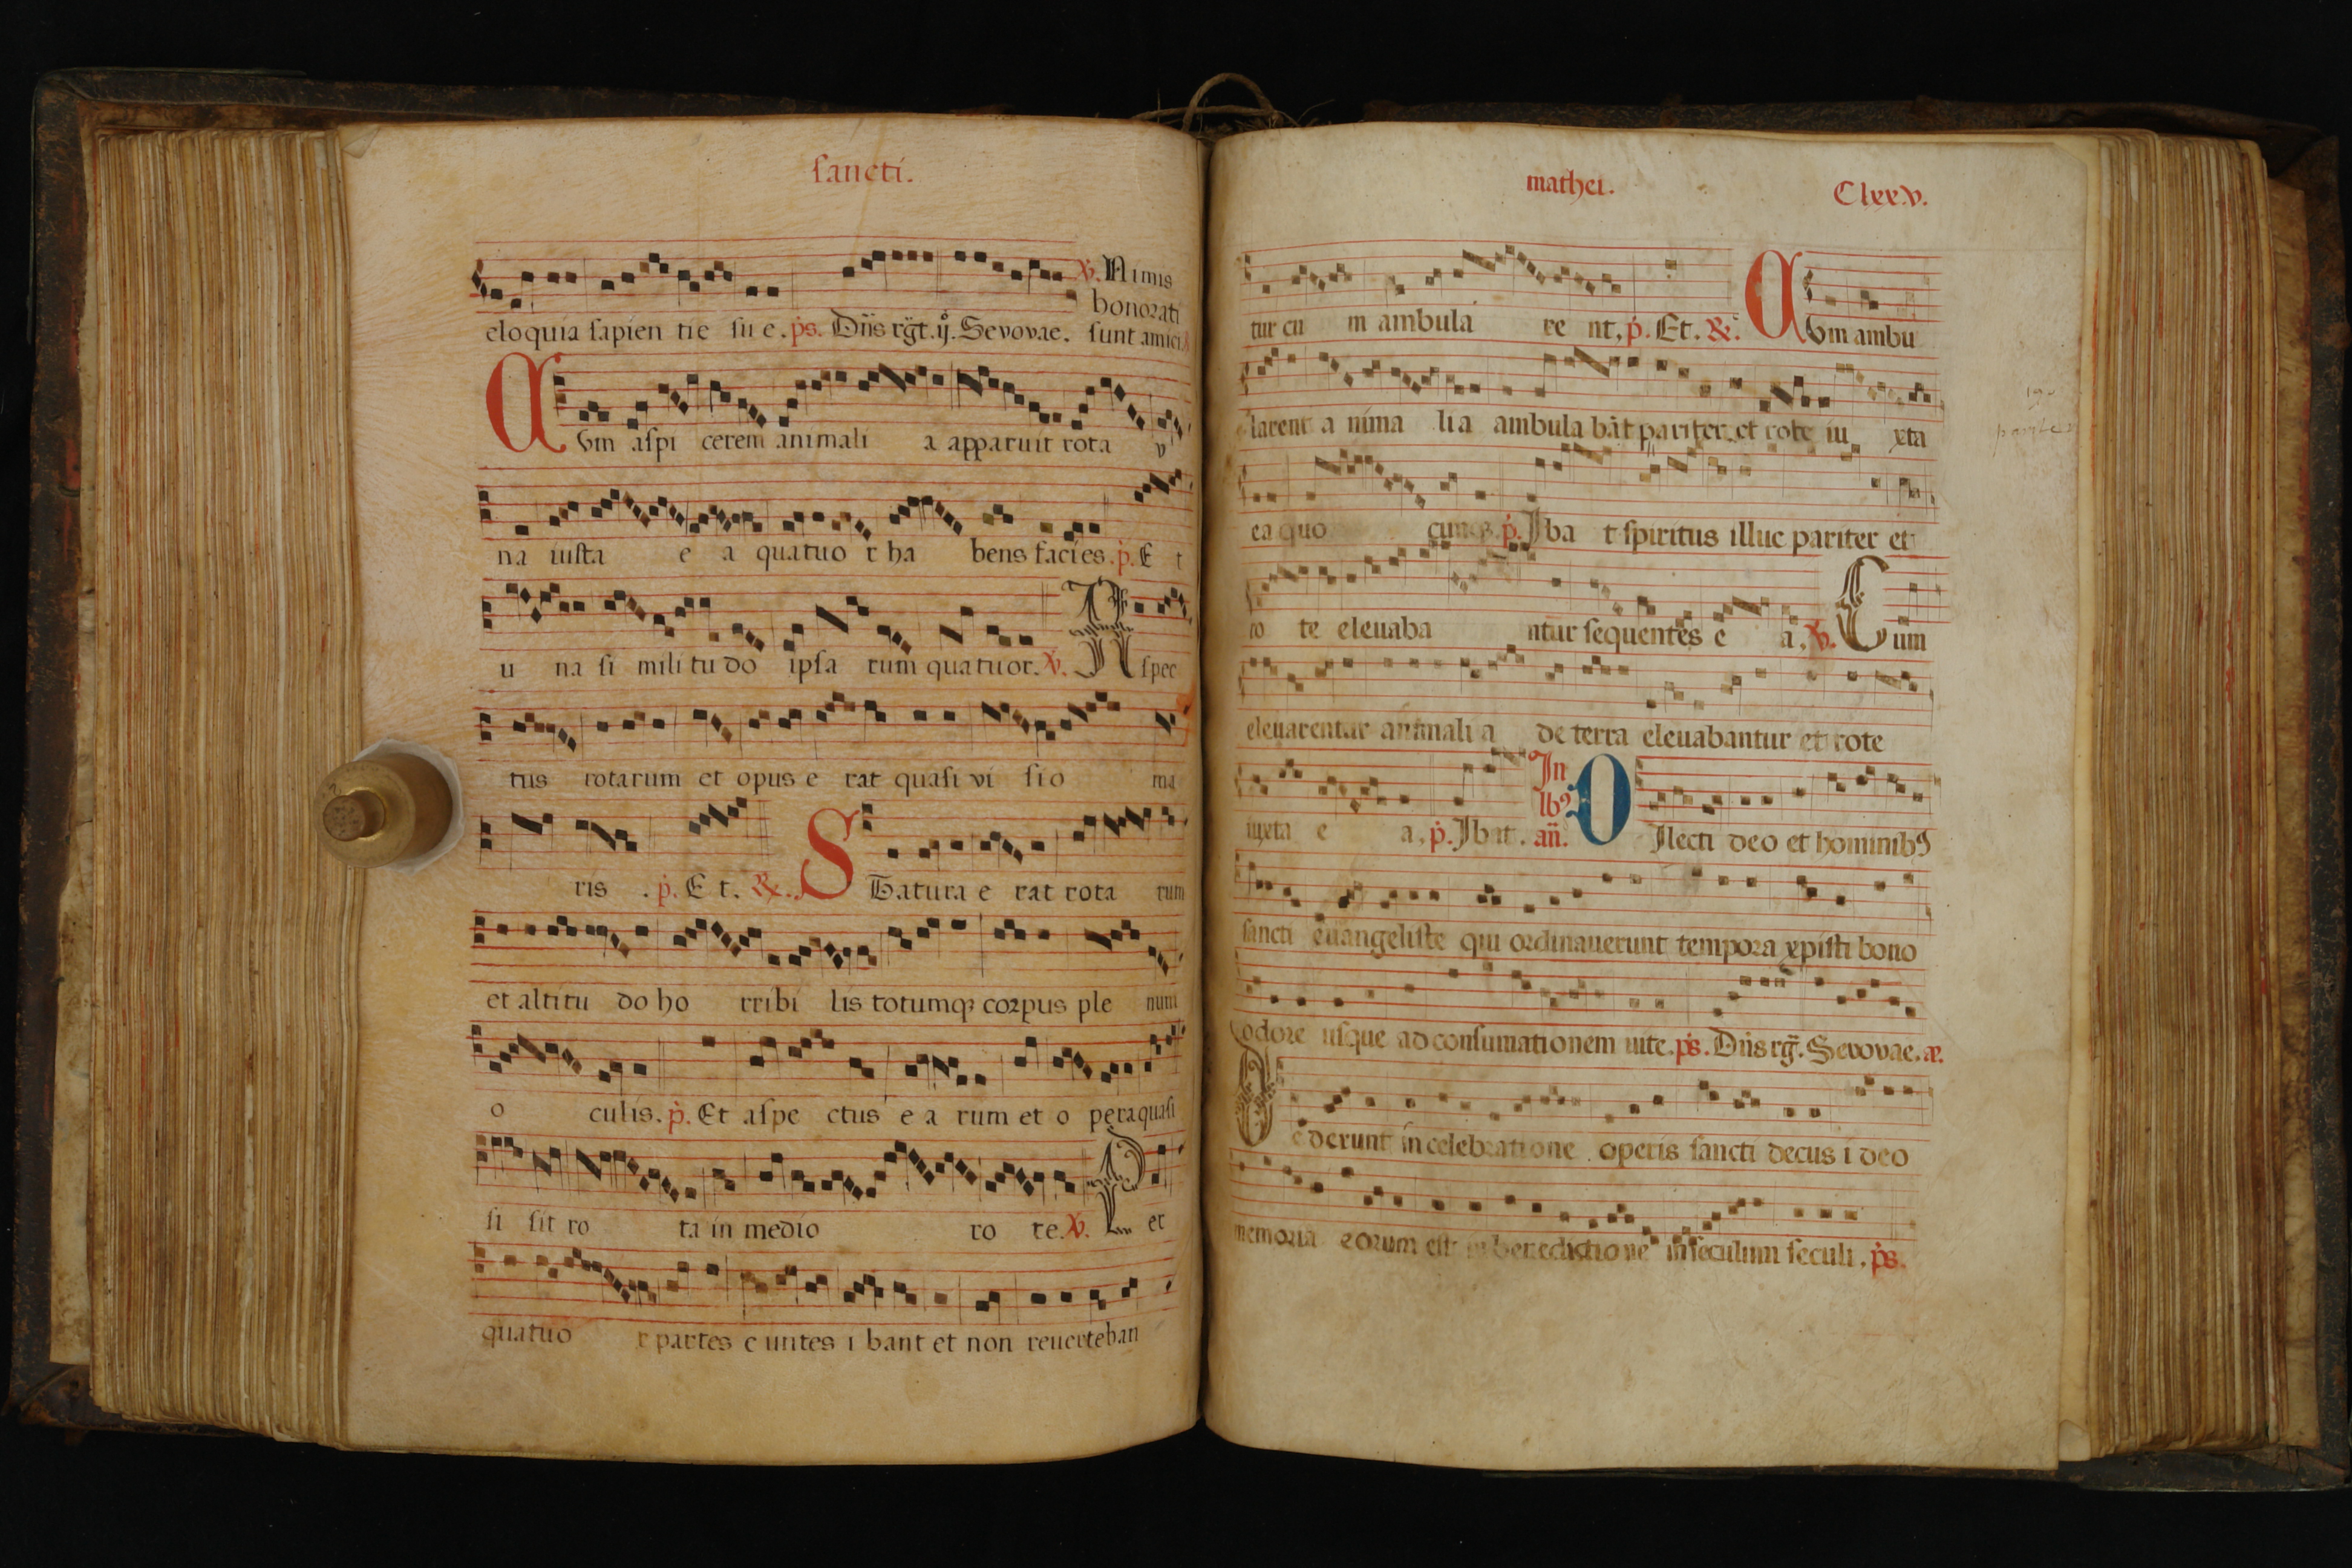 sancti.
℣. Nimis
honorati
eloquia sapien tie su e. p̄s. Dn̄s rḡt. ij. Sevovae. sunt amici
CVm aspi cerem animali a apparuit rota v
na iusta e a quatuo r ha bens facies. p̄. E t
u na si mili tu do ipsa rum quatuor. ℣. Aspec
tus rotarum et opus e rat quasi vi sio ma
ris . p̄. E t. ℟. STatura e rat rota rum
et altitu do ho rribi lis totumqꝫ corpus ple num
o culis. p̄. Et aspe ctus e a rum et o pera quasi
si sit ro ta in medio ro te. ℣. Per
quatuo r partes e untes i bant et non reverteban
mathei.
Clxx.v.
tur cu m ambula re nt, p̄. Et. ℟. CVm ambu
larent a nima lia ambula bāt pariter et rote iu xta
ea quo p̄. Iba t spiritus illuc pariter et
ro te elevaba ntur sequentes e a, ℣. Cum
elevarentur animali a de terra elevabantur et rote
In
lbꝰ
iuxta e a, p̄. Ibat. an̄. DIlecti deo et hominibꝰ
sancti evangeliste qui ordinaverunt tempora xpisti bono
odore usque ad consumationem vite. p̄s. Dn̄s rḡ. Sevovae. æ.
Dederunt in celebratione operis sancti decus i deo
memoria eorum est in benedictio ne in seculum seculi, p̄s.